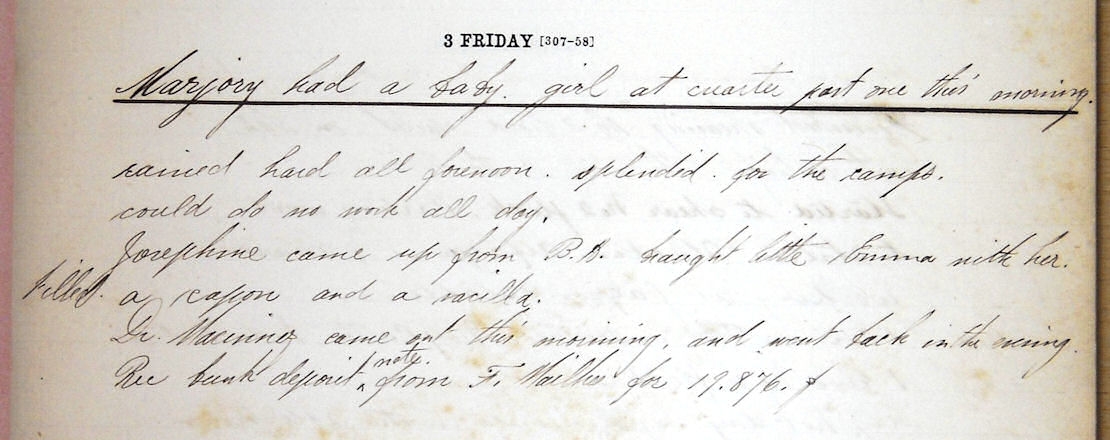 3 FRIDAY [307-58]
Marjory had a baby. girl at quarter past one this morning.
rained hard all forenoon. splendid. for the camps.
could do no work all day.
Josephine came up from B.A. braught little Emma with her.
killed. a capon and a
Dr. came out this morning, and went back in the evening.
Rec bank deposit note. from F. for 19.876. $